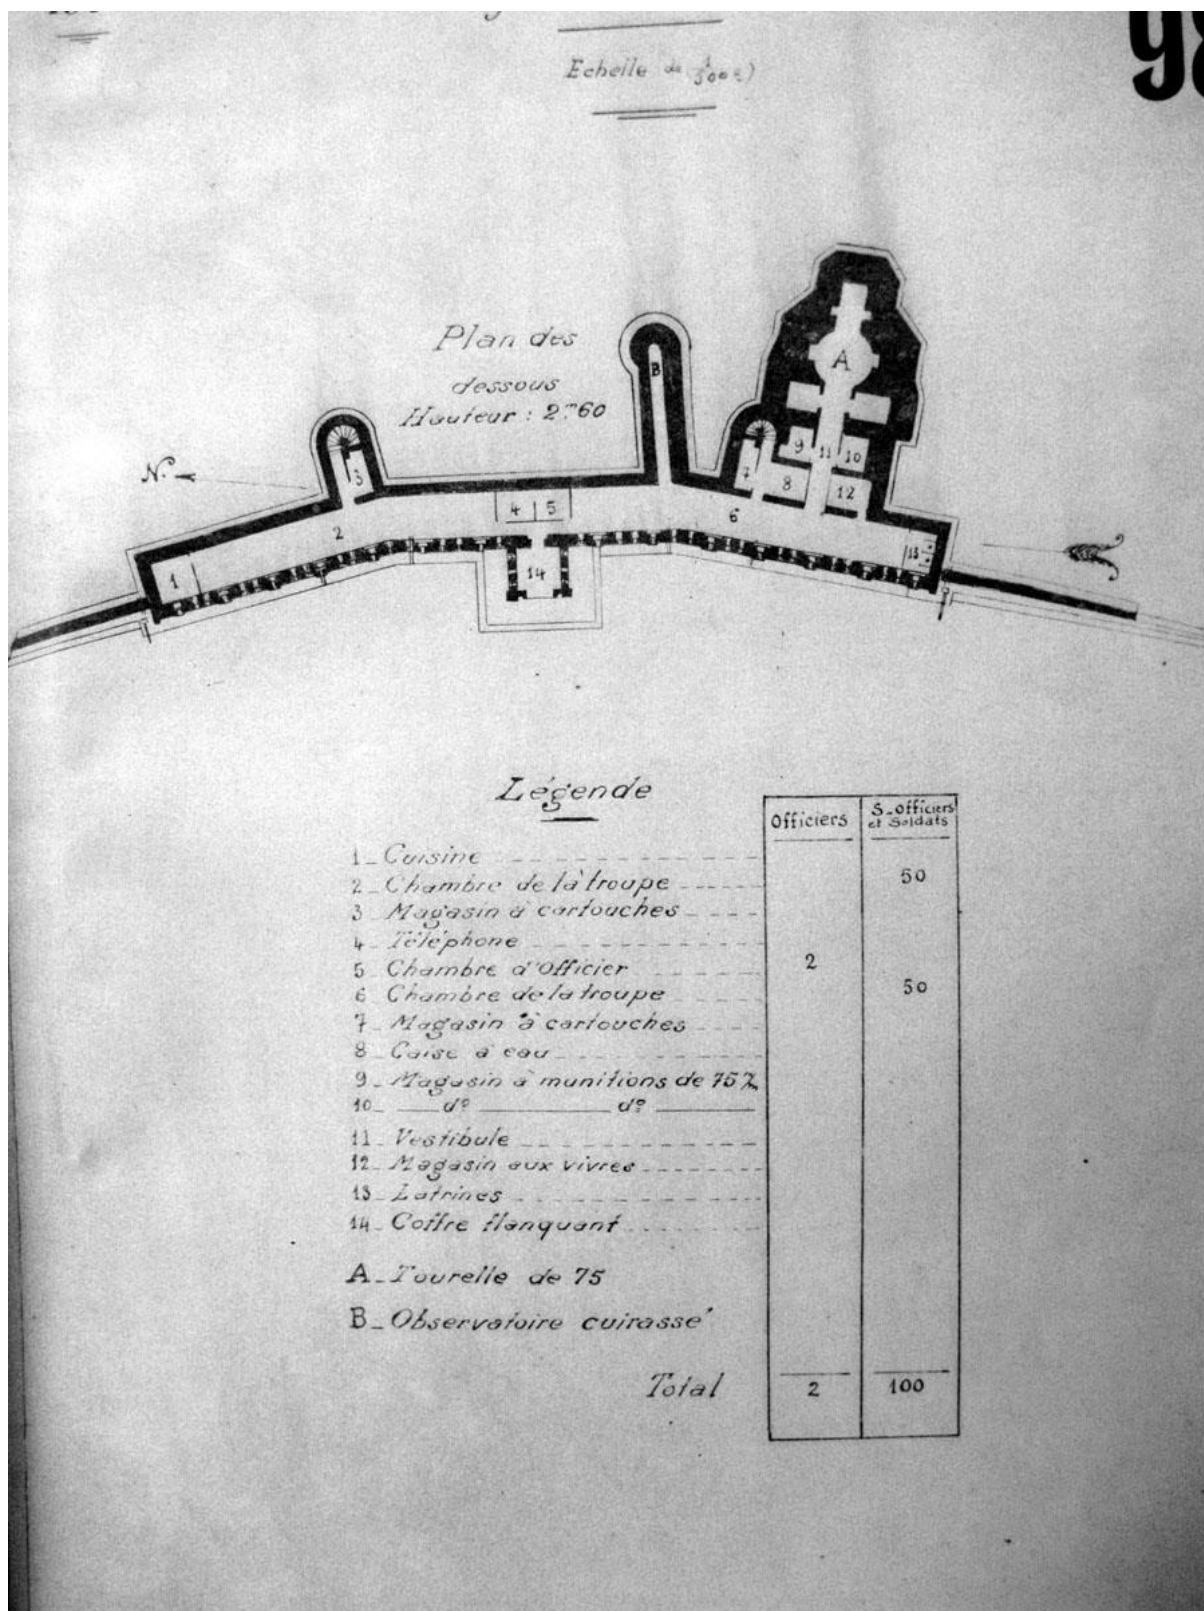 98
Echelle de 1/500e)
Plan des
dessous
Hauteur : 2m60
N.
A
B
3
9
11
10
7
8
12
4
5
6
2
13
1
14
Légende
Officiers
S_Officiers
et Soldats
1_ Cuisine
2_ Chambre de la troupe 50
3_ Magasin à cartouches
4_ Téléphone
5_ Chambre d'Officier 2
6_ Chambre de la troupe 50
7_ Magasin à cartouches
8_ Caise à eau
9_ Magasin à munitions de 75
10_ do do
11_ Vestibule
12_ Magasin aux vivres
13_ Latrines
14_ Coffre flanquant
A_ Tourelle de 75
B_ Observatoire cuirassé
Total 2 100